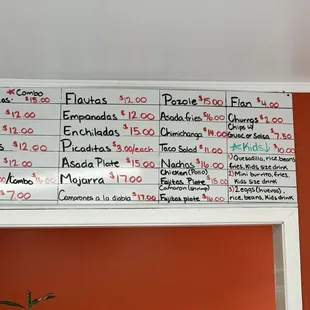 ★Combo
$15.00
$12.00
$12.00
$12.00
$12.00
/Combo $16.00
$7.00
Flautas $12.00
Empanadas $12.00
Enchiladas $15.00
Picaditas $3.00/each
Asada Plate $15.00
Mojarra $17.00
Camarones a la diabla $17.00
Pozole $15.00
Asada fries $16.00
Chimichanga $14.00
Taco Salad $11.00
Nachos $16.00
Chicken (Pollo)
Fajitas Plate $15.00
Camaron (shrimp)
Fajitas plate $16.00
Flan $4.00
Churros $2.00
Chips w/
Guac or Salsa $7.50
★Kids↓ $10.00
1) Quesadilla, rice, beans,
fries, Kids size drink
2) Mini burrito, fries,
Kids size drink
3) 2 eggs (huevos),
rice, beans, Kids drink